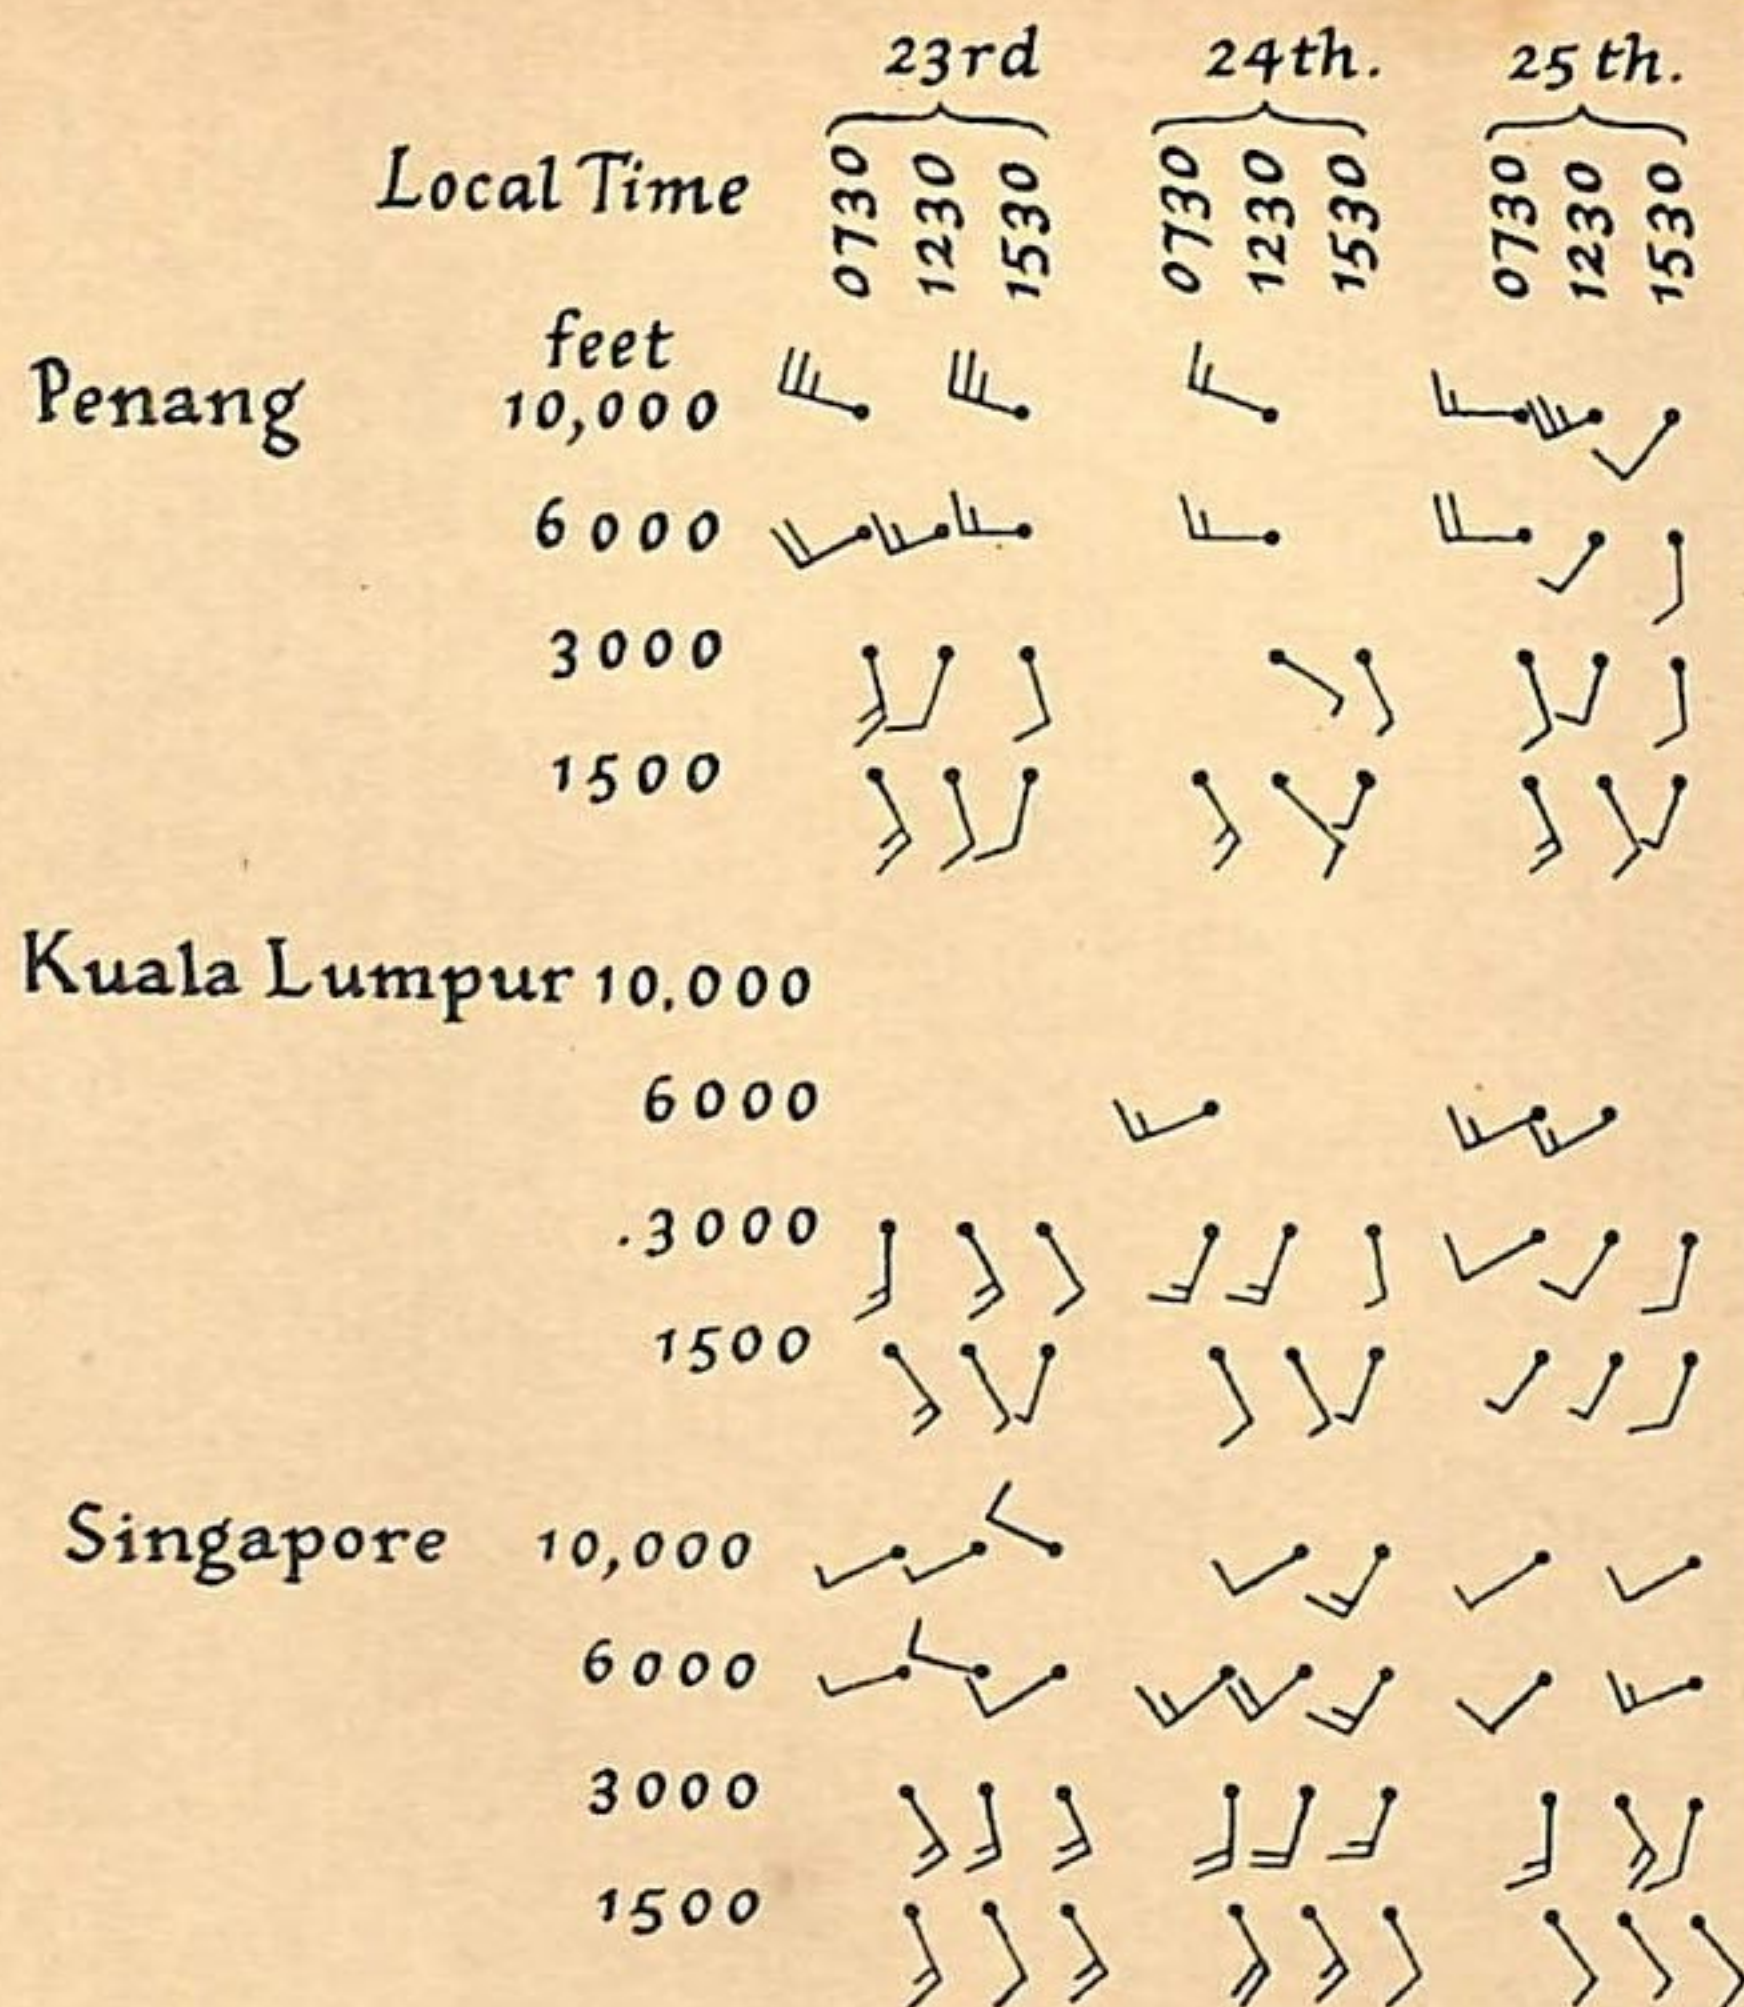 23rd 24th. 25th.
Local Time 0730 1230 1530 0730 1230 1530 0730 1230 1530
feet
Penang 10,000
6000
3000
1500
Kuala Lumpur 10.000
6000
.3000
1500
Singapore 10,000
6000
3000
1500